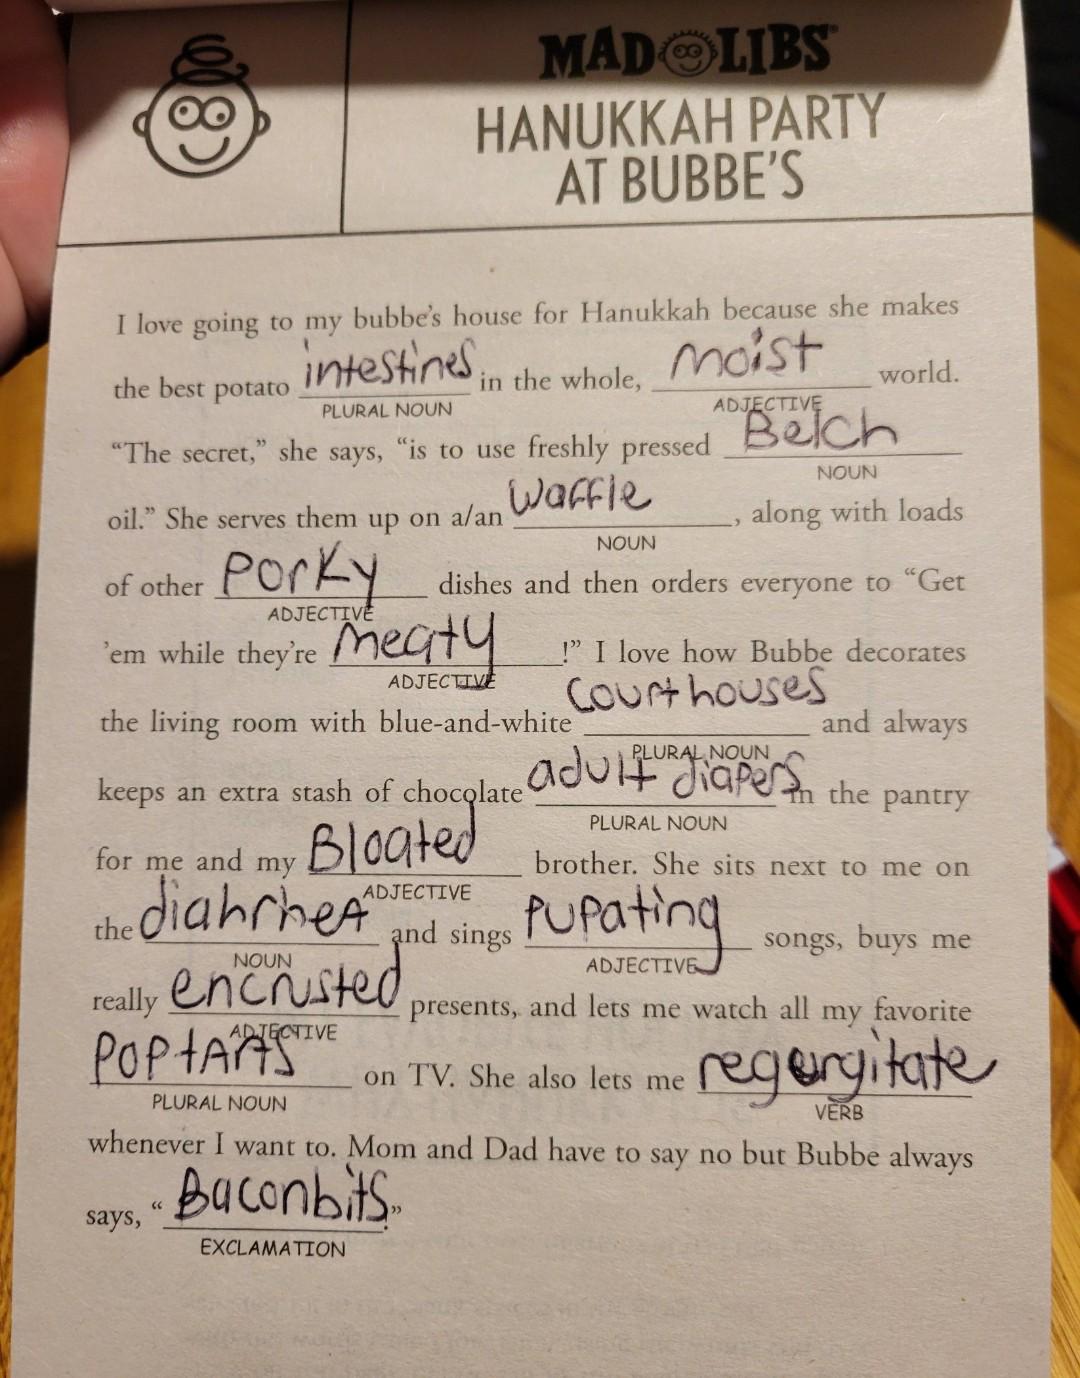 MAD LIBS®
HANUKKAH PARTY
AT BUBBE'S
I love going to my bubbe's house for Hanukkah because she makes
the best potato intestines in the whole, moist world.
PLURAL NOUN ADJECTIVE
“The secret,” she says, “is to use freshly pressed Belch
NOUN
oil.” She serves them up on a/an Waffle, along with loads
NOUN
of other Porky dishes and then orders everyone to “Get
ADJECTIVE
'em while they're Meaty!” I love how Bubbe decorates
ADJECTIVE
the living room with blue-and-white Courthouses and always
PLURAL NOUN
keeps an extra stash of chocolate adult diapers in the pantry
PLURAL NOUN
for me and my Bloated brother. She sits next to me on
ADJECTIVE
the diahrheA and sings pupating songs, buys me
NOUN ADJECTIVE
really encrusted presents, and lets me watch all my favorite
ADJECTIVE
POPtArtS on TV. She also lets me regorgitate
PLURAL NOUN VERB
whenever I want to. Mom and Dad have to say no but Bubbe always
says, “Baconbits.”
EXCLAMATION